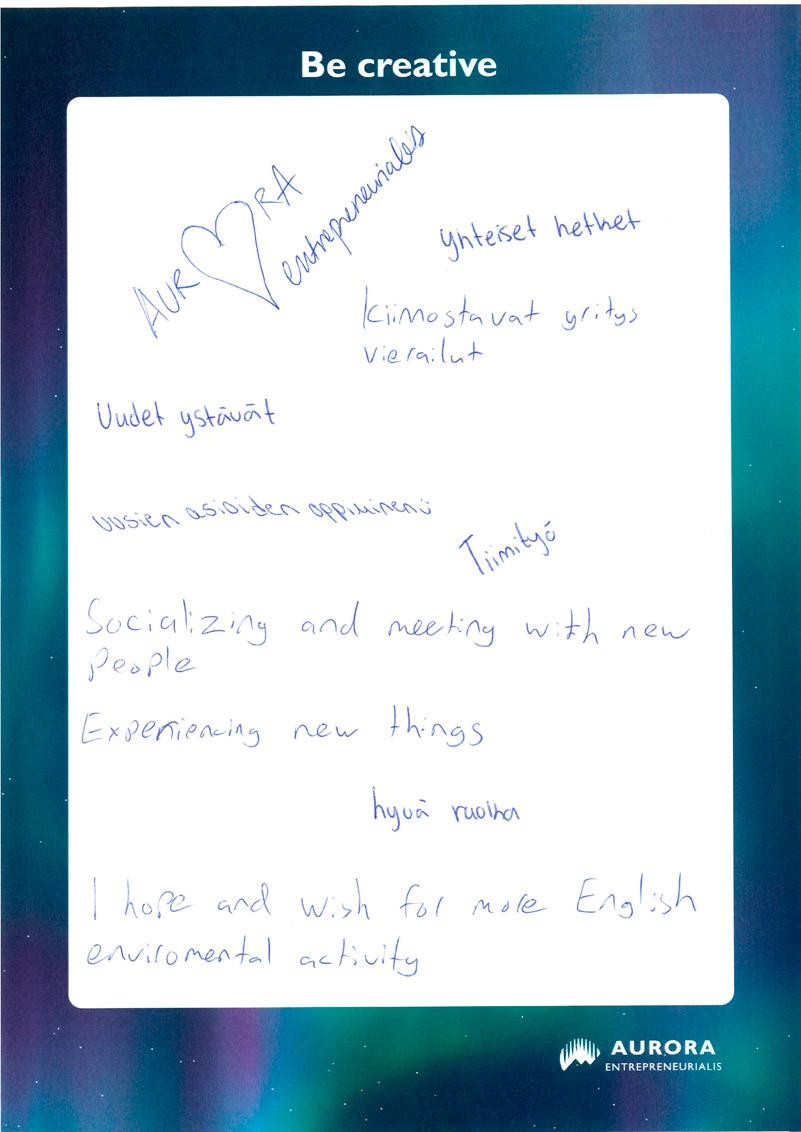 Be creative
AUR♡RA
entrepreneurialis
yhteiset hetket
kiinnostavat yritys
vierailut
Uudet ystävät
uusien asioiden oppiminen
Tiimityö
Socializing and meeting with new
people
Experiencing new things
hyvä ruoka
I hope and wish for more English
enviromental activity
AURORA
ENTREPRENEURIALIS